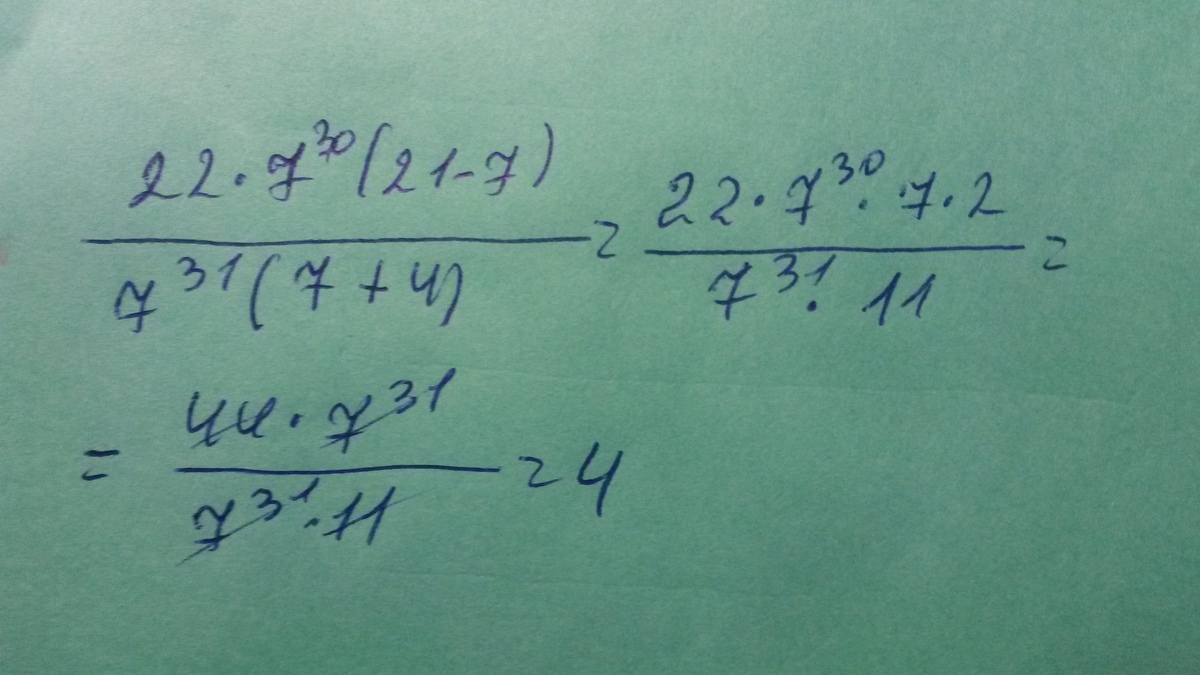 22·7³⁰(21-7) / 7³¹(7+4) = 22·7³⁰·7·2 / 7³¹·11 =
= 44·7³¹ / 7³¹·11 = 4